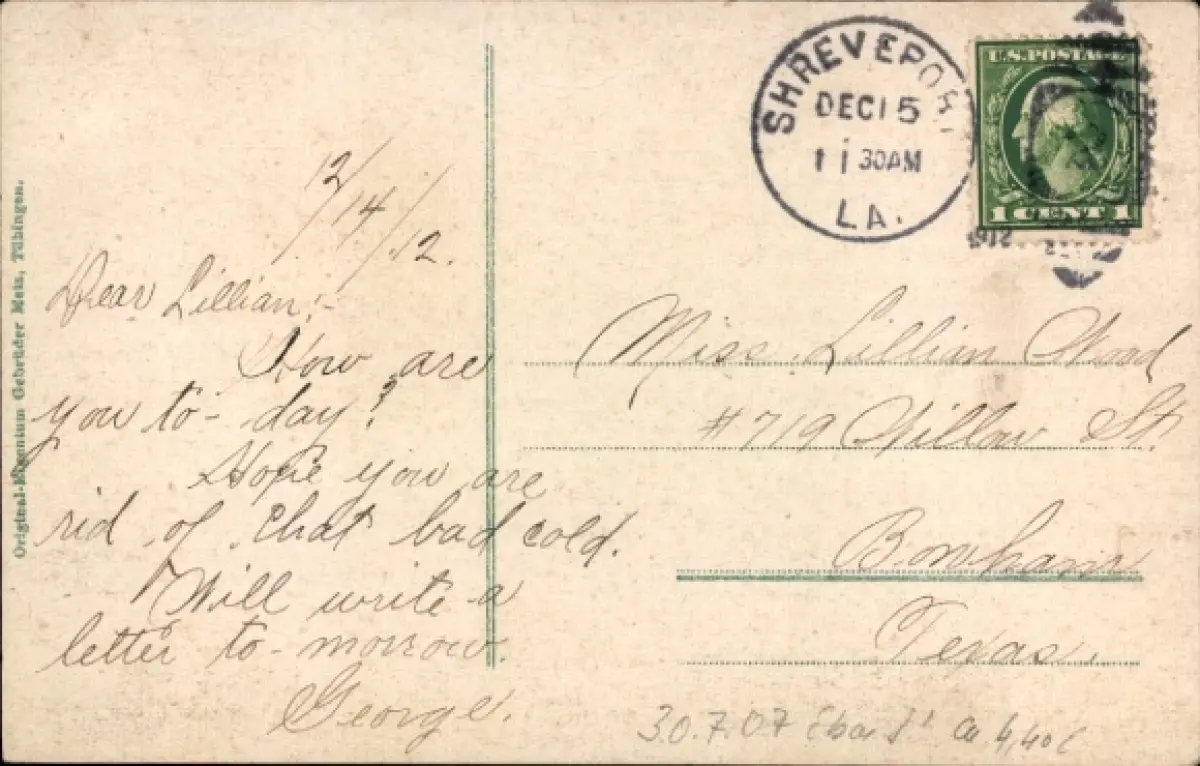 SHREVEPORT
DEC 15
11 30AM
LA.
1912
U.S. POSTAGE
1 CENT 1
Original-Eigentum Gebrüder Metz, Tübingen.
12/14/12.
Dear Lillian:-
How are
you to-day?
Hope you are
rid of that bad cold.
Will write a
letter to-morrow.
George.
Miss Lillian Wood
#719 Willow St.
Bonham
Texas.
30.7.07